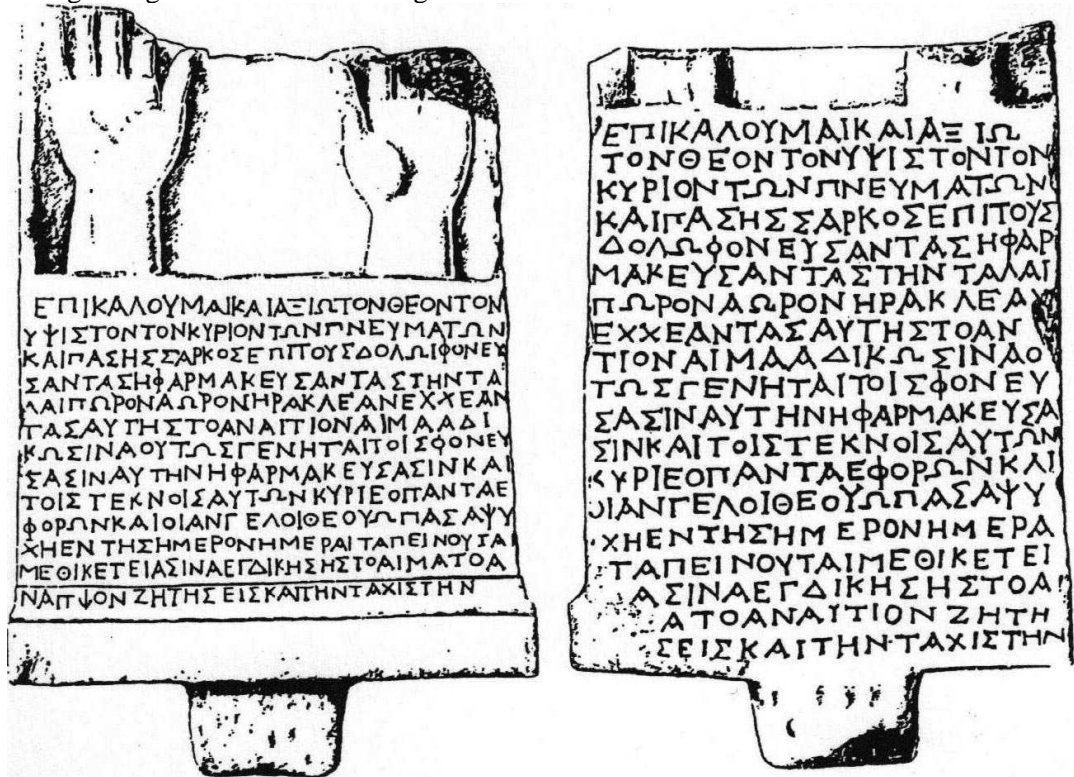 ΕΠΙΚΑΛΟΥΜΑΙΚΑΙΑΞΙΩΤΟΝΘΕΟΝΤΟΝ
ΥΨΙΣΤΟΝΤΟΝΚΥΡΙΟΝΤΩΝΠΝΕΥΜΑΤΩΝ
ΚΑΙΠΑΣΗΣΣΑΡΚΟΣΕΠΙΤΟΥΣΔΟΛΩΙΦΟΝΕΥ
ΣΑΝΤΑΣΗΦΑΡΜΑΚΕΥΣΑΝΤΑΣΤΗΝΤΑ
ΛΑΙΠΩΡΟΝΑΩΡΟΝΗΡΑΚΛΕΑΝΕΧΧΕΑΝ
ΤΑΣΑΥΤΗΣΤΟΑΝΑΙΤΙΟΝΑΙΜΑΑΔΙ
ΚΩΣΙΝΑΟΥΤΩΣΓΕΝΗΤΑΙΤΟΙΣΦΟΝΕΥ
ΣΑΣΙΝΑΥΤΗΝΗΦΑΡΜΑΚΕΥΣΑΣΙΝΚΑΙ
ΤΟΙΣΤΕΚΝΟΙΣΑΥΤΩΝΚΥΡΙΕΟΠΑΝΤΑΕ
ΦΟΡΩΝΚΑΙΟΙΑΝΓΕΛΟΙΘΕΟΥΩΠΑΣΑΨΥ
ΧΗΕΝΤΗΣΗΜΕΡΟΝΗΜΕΡΑΙΤΑΠΕΙΝΟΥΤΑΙ
ΜΕΘΙΚΕΤΕΙΑΣΙΝΑΕΓΔΙΚΗΣΗΣΤΟΑΙΜΑΤΟΑ
ΝΑΠΨΟΝΖΗΤΗΣΕΙΣΚΑΙΤΗΝΤΑΧΙΣΤΗΝ
ΕΠΙΚΑΛΟΥΜΑΙΚΑΙΑΞΙΩ
ΤΟΝΘΕΟΝΤΟΝΥΨΙΣΤΟΝΤΟΝ
ΚΥΡΙΟΝΤΩΝΠΝΕΥΜΑΤΩΝ
ΚΑΙΠΑΣΗΣΣΑΡΚΟΣΕΠΙΤΟΥΣ
ΔΟΛΩΦΟΝΕΥΣΑΝΤΑΣΗΦΑΡ
ΜΑΚΕΥΣΑΝΤΑΣΤΗΝΤΑΛΑΙ
ΠΩΡΟΝΑΩΡΟΝΗΡΑΚΛΕΑΝ
ΕΧΧΕΑΝΤΑΣΑΥΤΗΣΤΟΑΝ
ΤΙΟΝΑΙΜΑΑΔΙΚΩΣΙΝΑΟ
ΤΩΣΓΕΝΗΤΑΙΤΟΙΣΦΟΝΕΥ
ΣΑΣΙΝΑΥΤΗΝΗΦΑΡΜΑΚΕΥΣΑ
ΣΙΝΚΑΙΤΟΙΣΤΕΚΝΟΙΣΑΥΤΩΝ
ΚΥΡΙΕΟΠΑΝΤΑΕΦΟΡΩΝΚΑΙ
ΟΙΑΝΓΕΛΟΙΘΕΟΥΩΠΑΣΑΨΥ
ΧΗΕΝΤΗΣΗΜΕΡΟΝΗΜΕΡΑ
ΤΑΠΕΙΝΟΥΤΑΙΜΕΘΙΚΕΤΕΙ
ΑΣΙΝΑΕΓΔΙΚΗΣΗΣΤΟΑΙ
ΑΤΟΑΝΑΥΤΙΟΝΖΗΤΗ
ΣΕΙΣΚΑΙΤΗΝ·ΤΑΧΙΣΤΗΝ